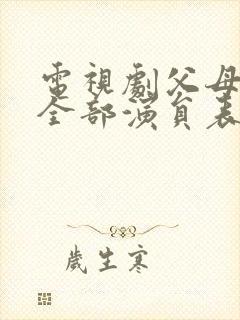 電視劇父母
全部演員表
歲生寒